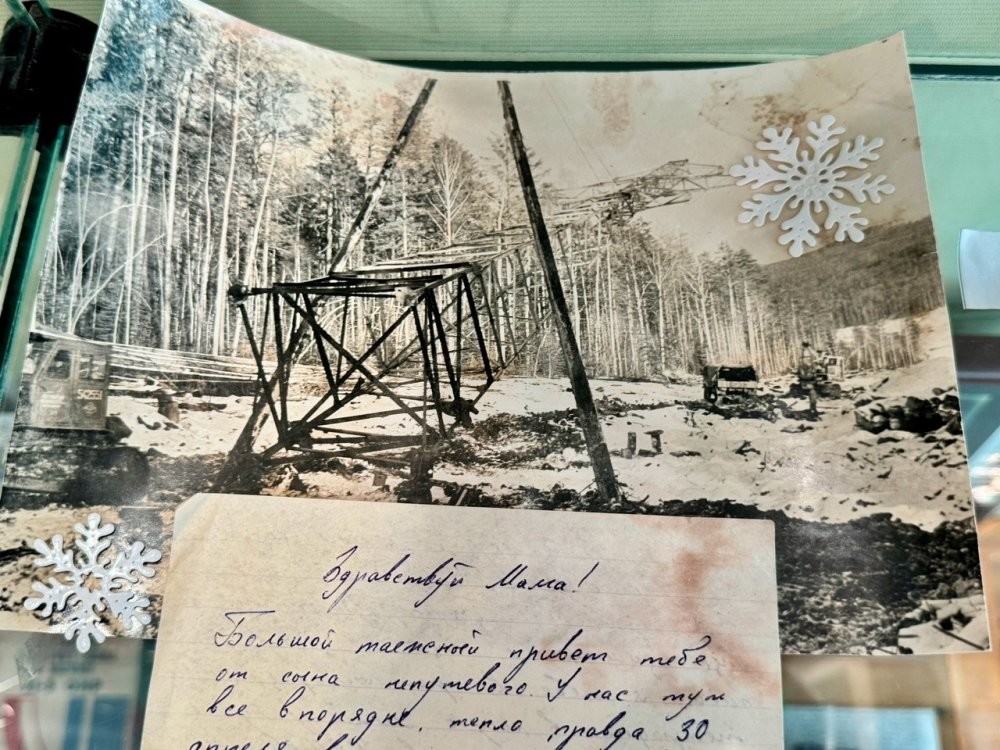 Здравствуй Мама!
Большой таежный привет тебе
от сына непутевого. У нас тут
все в порядке, тепло, правда 30
апреля